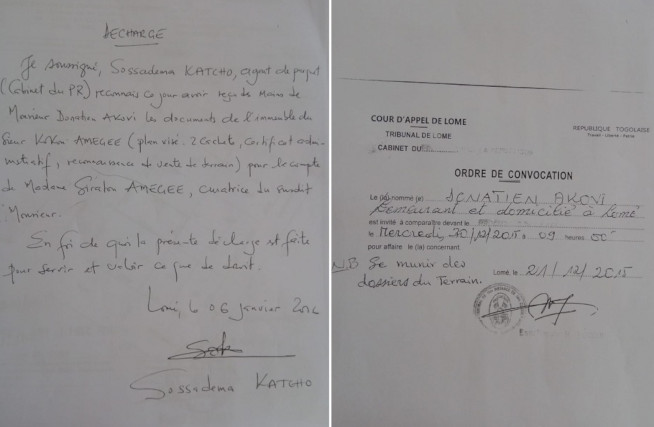 DECHARGE
Je soussigné, Sossadema KATCHO, agent de projet
(Cabinet du PR) reconnais ce jour avoir reçu des mains de
Monsieur Donatien AKOVI les documents de l'immeuble du
Sieur Kokou AMEGEE (plan visé. 2 cachets, certificat admi-
nistratif, reconnaissance de vente de terrain) pour le compte
de Madame AMEGEE, curatrice du susdit
Monsieur.
En foi de quoi la présente décharge est faite
pour servir et valoir ce que de droit.
Lomé, le 06 janvier
Sossadema KATCHO
COUR D'APPEL DE LOME
TRIBUNAL DE LOME
CABINET DU
REPUBLIQUE TOGOLAISE
Travail - Liberté - Patrie
ORDRE DE CONVOCATION
Le (la) nommé (e) AKOVI
demeurant et domicilié à Lomé
est invité à comparaître devant le
le Mercredi, 30/12/2015 à 09 heures 00
pour affaire le (la) concernant.
N.B Se munir des
dossiers du Terrain.
Lomé, le 21/12/2015